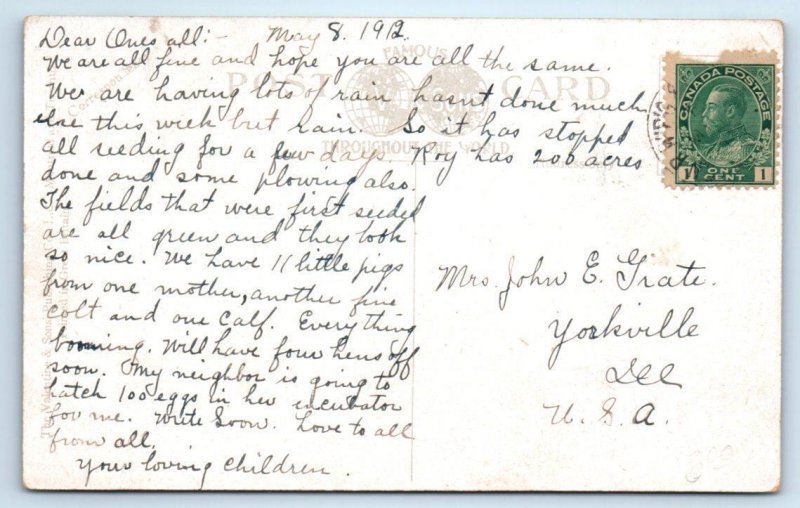 Dear Ones all:- May 8. 1912.
We are all fine and hope you are all the same.
We are having lots of rain hasn't done much
else this week but rain. So it has stopped
all seeding for a few days. Roy has 200 acres
done and some plowing also.
The fields that were first seeded
are all green and they look
so nice. We have 11 little pigs
from one mother, another fine
colt and one calf. Everything
booming. Will have four hens off
soon. My neighbor is going to
hatch 100 eggs in her incubator
for me. Write Soon. Love to all
from all.
Your loving children.
Mrs. John E. Grate.
Yorkville
Ill
U. S. A.
FAMOUS
POST CARD
THROUGHOUT THE WORLD
CANADA POSTAGE
1 ONE CENT 1